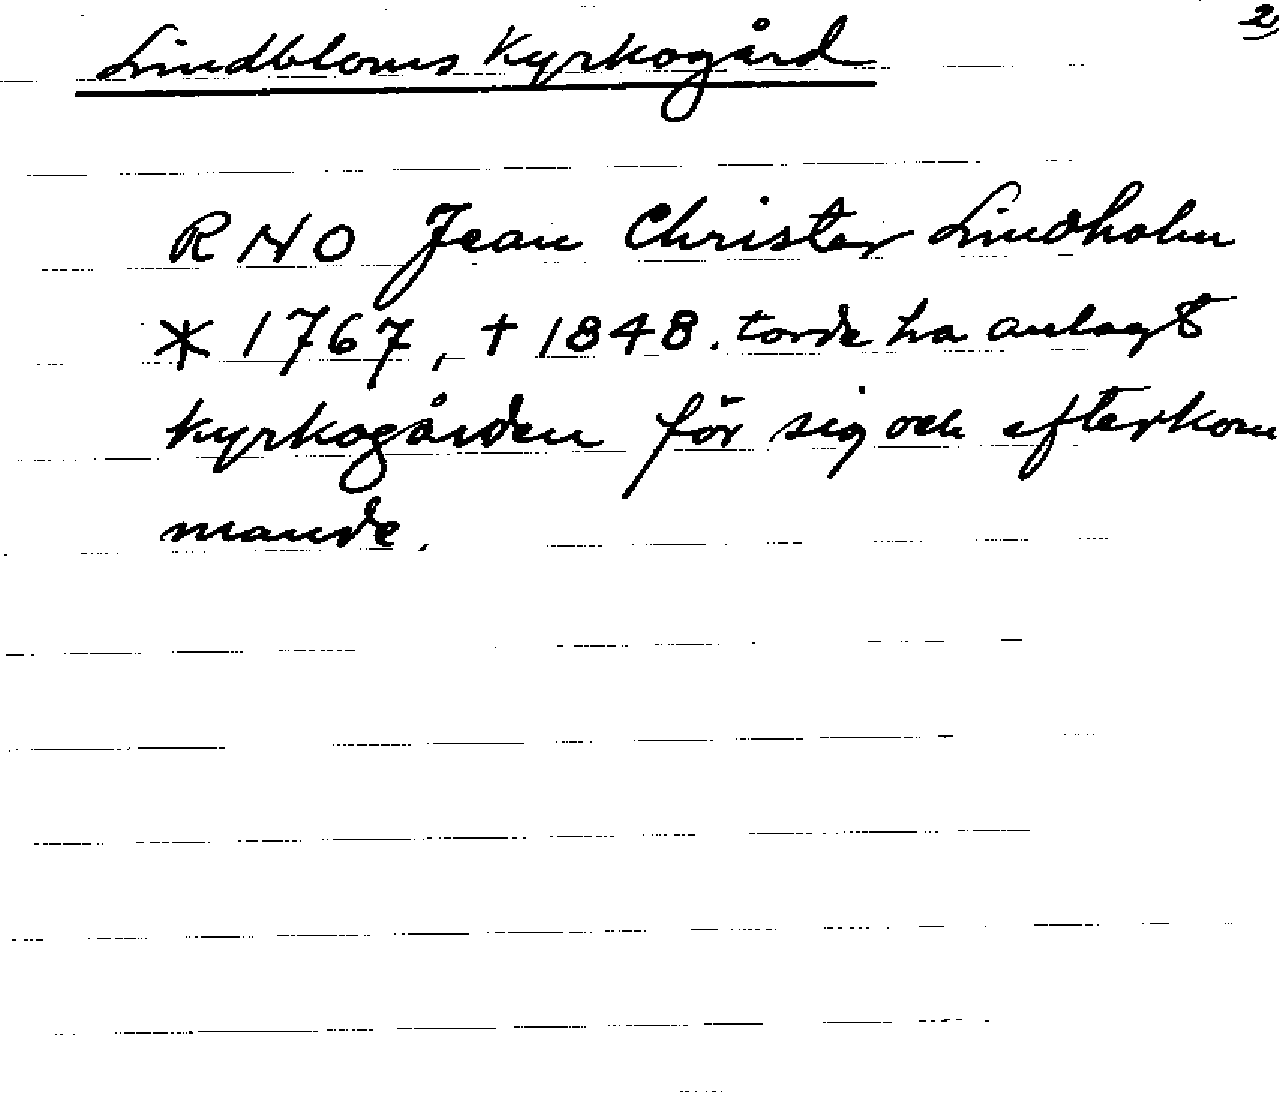 2)
Lindbloms Kyrkogård
RNO Jean Christer Lindholm
* 1767, † 1848. torde ha anlagt
kyrkogården för sig och efterkom
mande.